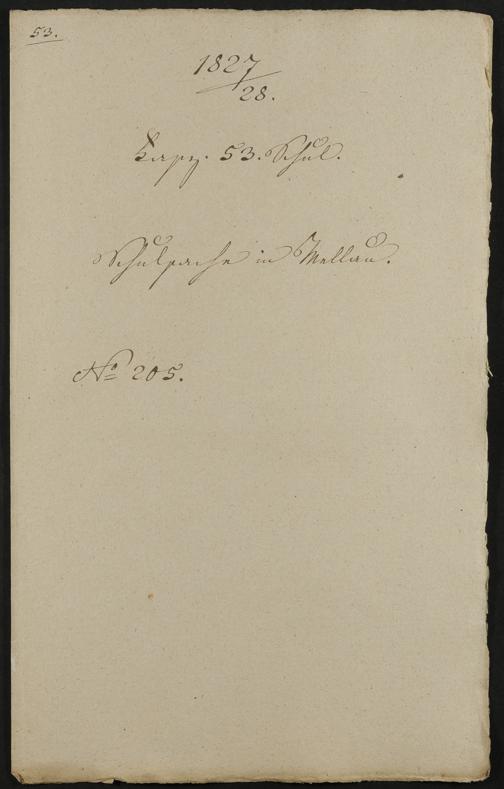 53.
1827
/28.
Fasz. 53. Schul.
Schulsache in Mellau.
No 205.